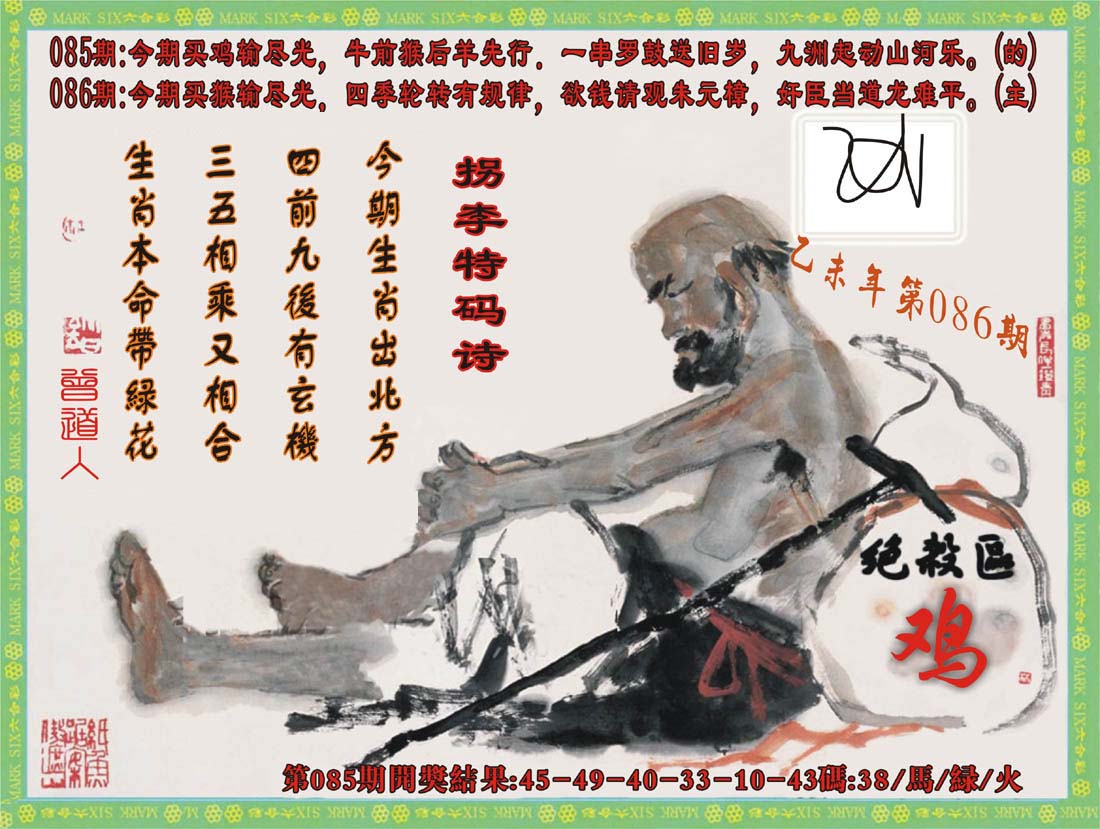 MARK SIX六合彩
085期:今期买鸡输尽光，牛前猴后羊先行．一串罗鼓送旧岁，九洲起动山河乐。(的)
086期:今期买猴输尽光．四季轮转有规律，欲钱请观朱元樟，奸臣当道龙难平。(主)
拐李特码诗
今期生肖出北方
四前九後有玄機
三五相乘又相合
生肖本命帶緑花
曾道人
乙未年第086期
绝殺區
鸡
第085期開獎結果:45-49-40-33-10-43碼:38/馬/緑/火